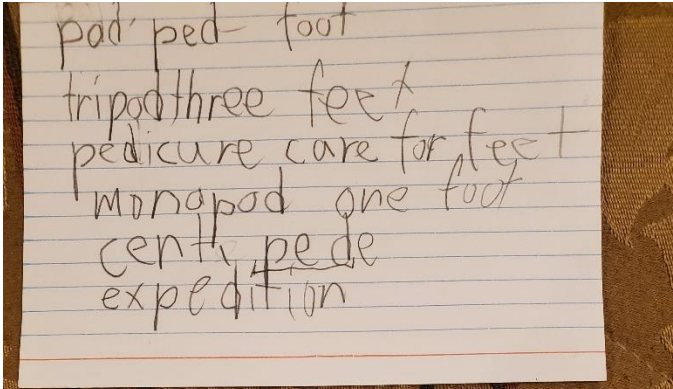 pod ped- foot
tripod three feet
pedicure care for feet
monopod one foot
centipede
expedition